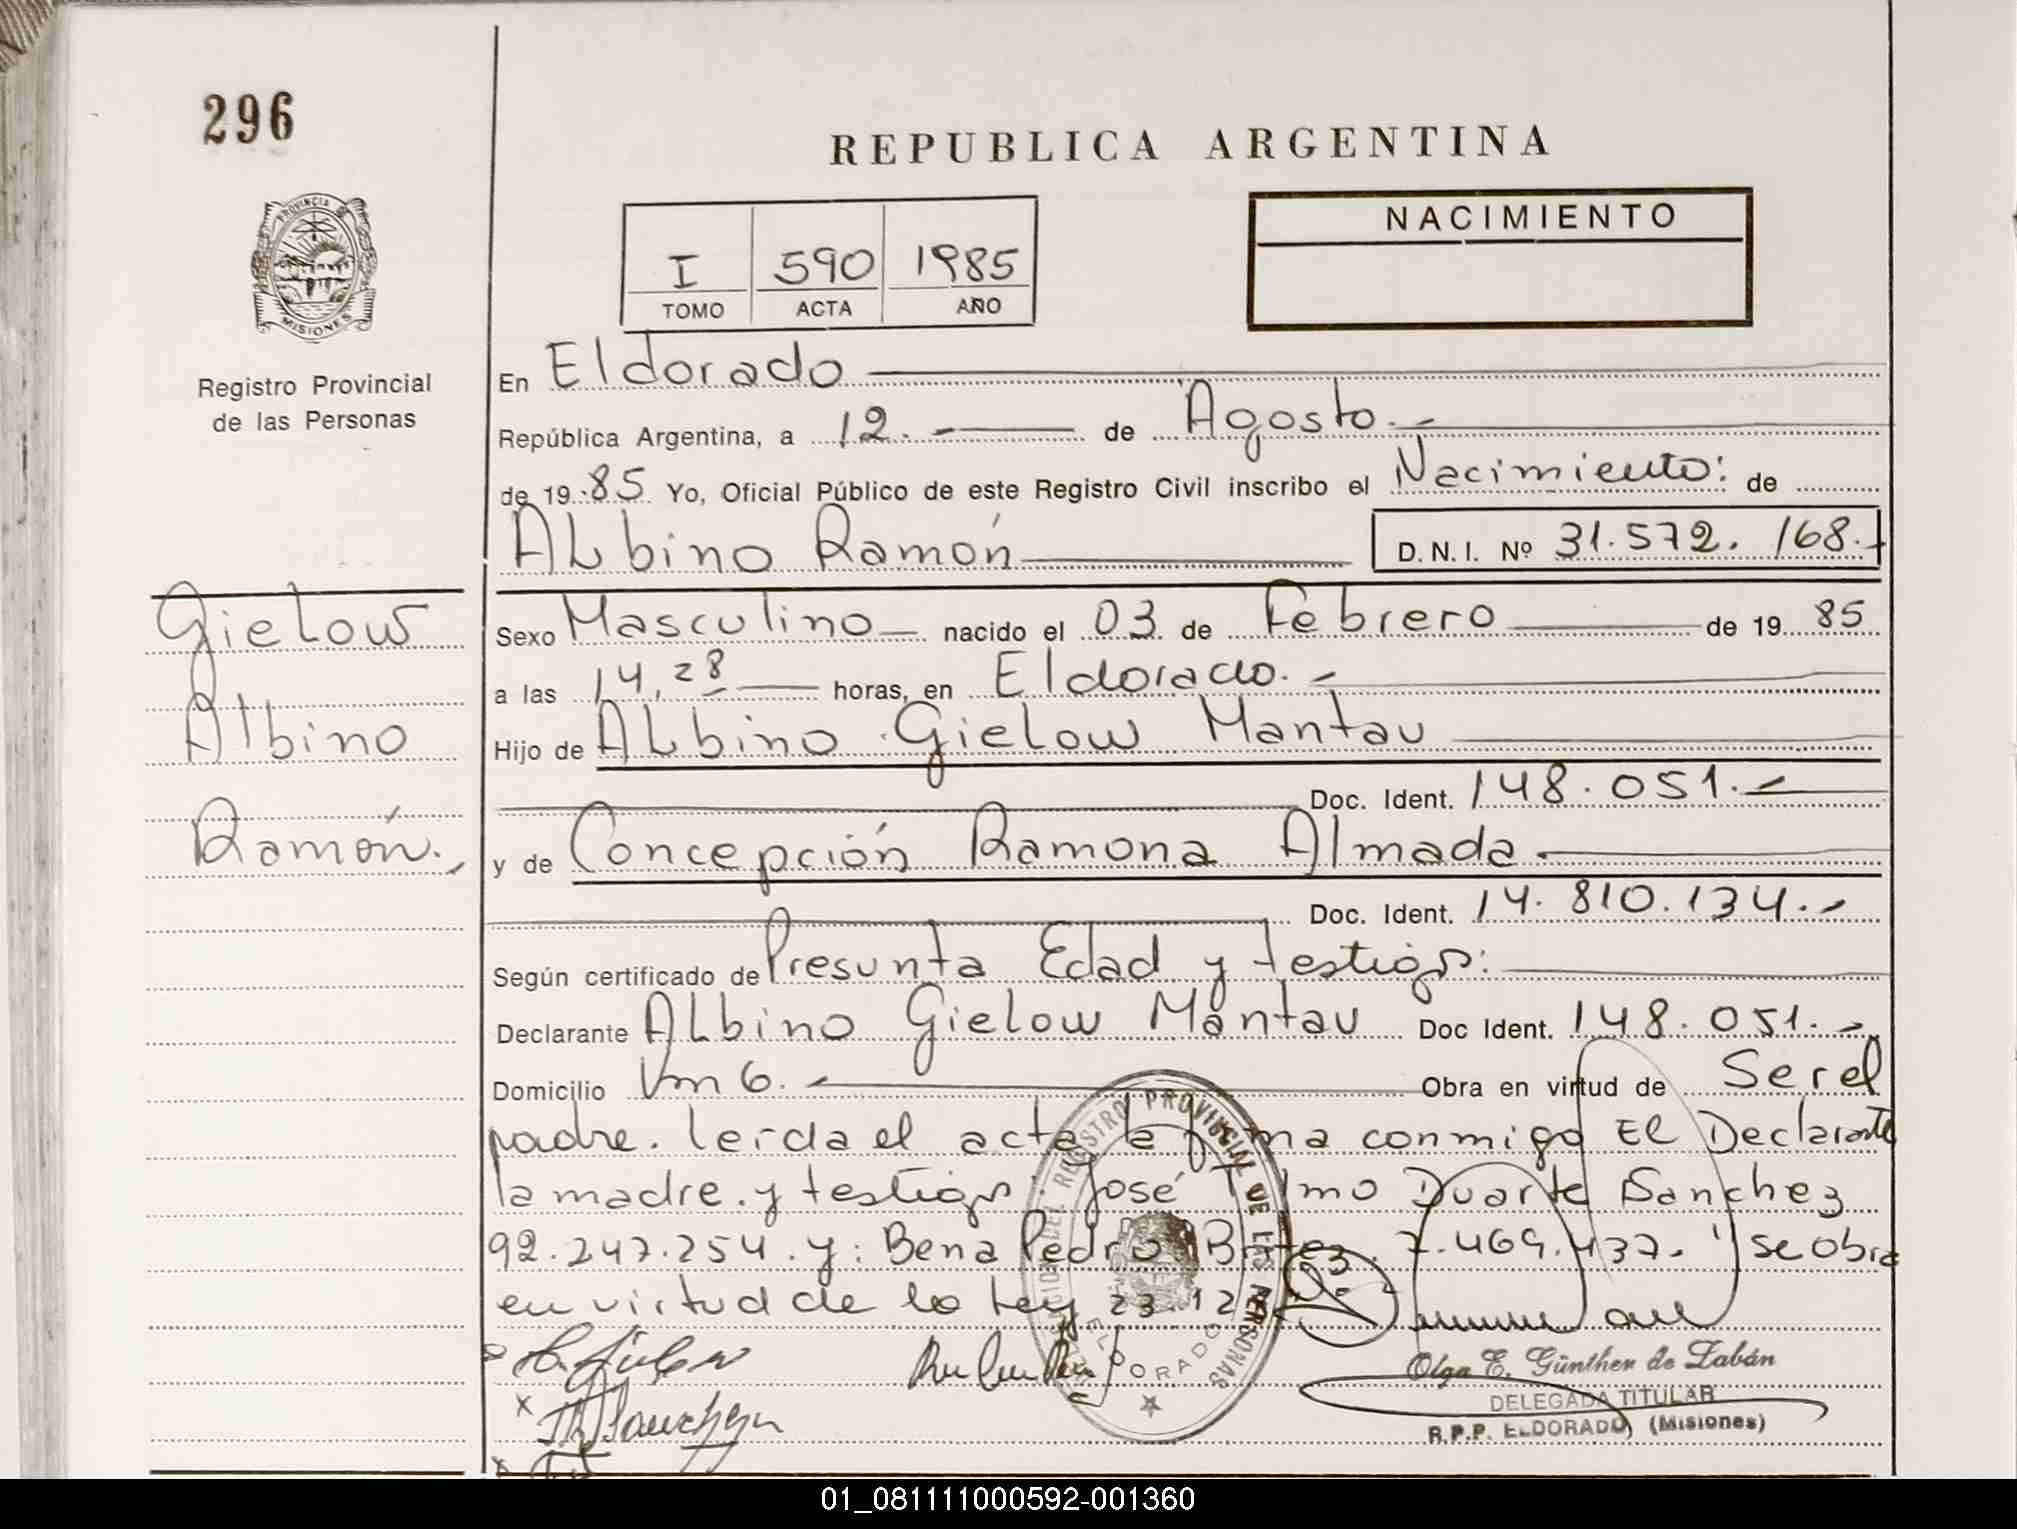 296
REPUBLICA ARGENTINA
PROVINCIA DE
MISIONES
Registro Provincial
de las Personas
I 590 1985
TOMO ACTA AÑO
NACIMIENTO
En Eldorado
República Argentina, a 12.- de Agosto.-
de 1985 Yo, Oficial Público de este Registro Civil inscribo el Nacimiento: de
Albino Ramón D.N.I. Nº 31.572.168.-
Gielow
Albino
Ramón.,
Sexo Masculino nacido el 03 de Febrero de 1985
a las 14,28 horas, en Eldorado.-
Hijo de Albino Gielow Mantau
Doc. Ident. 148.051.-
y de Concepción Ramona Almada.
Doc. Ident. 14.810.134.-
Según certificado de Presunta Edad y testigos:
Declarante Albino Gielow Mantau Doc Ident. 148.051.-
Domicilio Km 6.- Obra en virtud de Ser el
padre. leida el acta la firma conmigo El Declarante
la madre. y testigos: José Telmo Duarte Sanchez
92.247.254. y: Bena Pedro 7.469.437. se obra
en virtud de la Ley 23.12
DELEGACION DEL REGISTRO PROVINCIAL DE LAS PERSONAS
ELDORADO
Olga E. Günther de Zabán
DELEGADA TITULAR
R.P.P. ELDORADO, (Misiones)
01_081111000592-001360